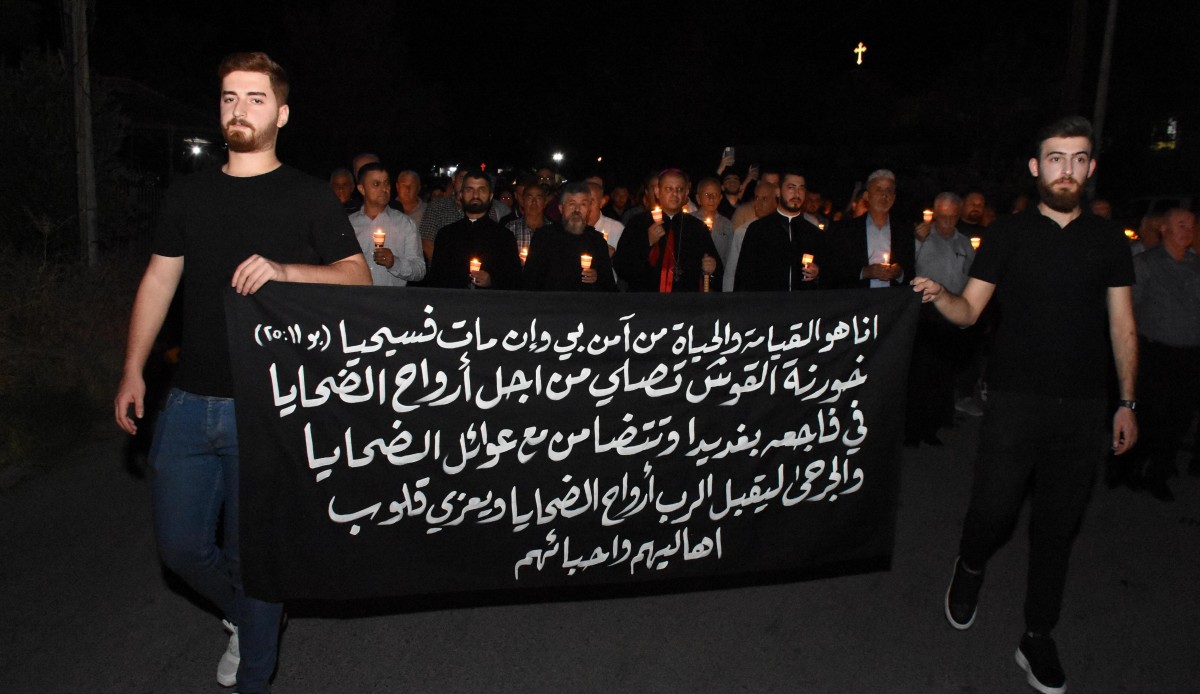 انا هو القيامة والحياة من آمن بي وإن مات فسيحيا (يو ١١: ٢٥)
خورنة القوش تصلي من اجل أرواح الضحايا
في فاجعه بغديدا وتتضامن مع عوائل الضحايا
والجرحى ليقبل الرب أرواح الضحايا ويعزي قلوب
اهاليهم واحبائهم